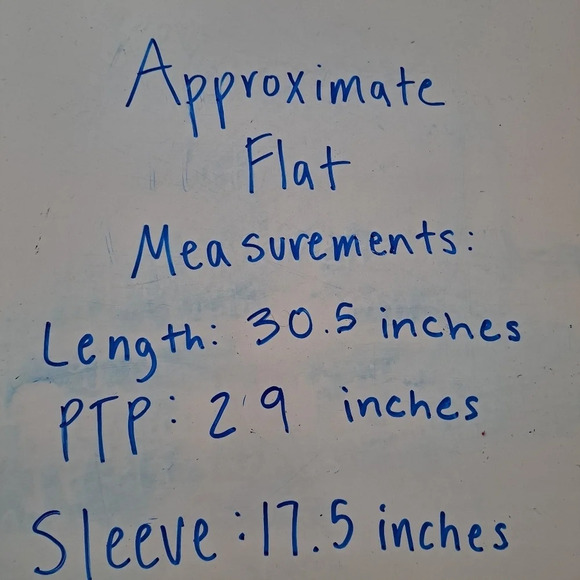 Approximate
Flat
Measurements:
Length: 30.5 inches
PTP: 29 inches
Sleeve: 17.5 inches